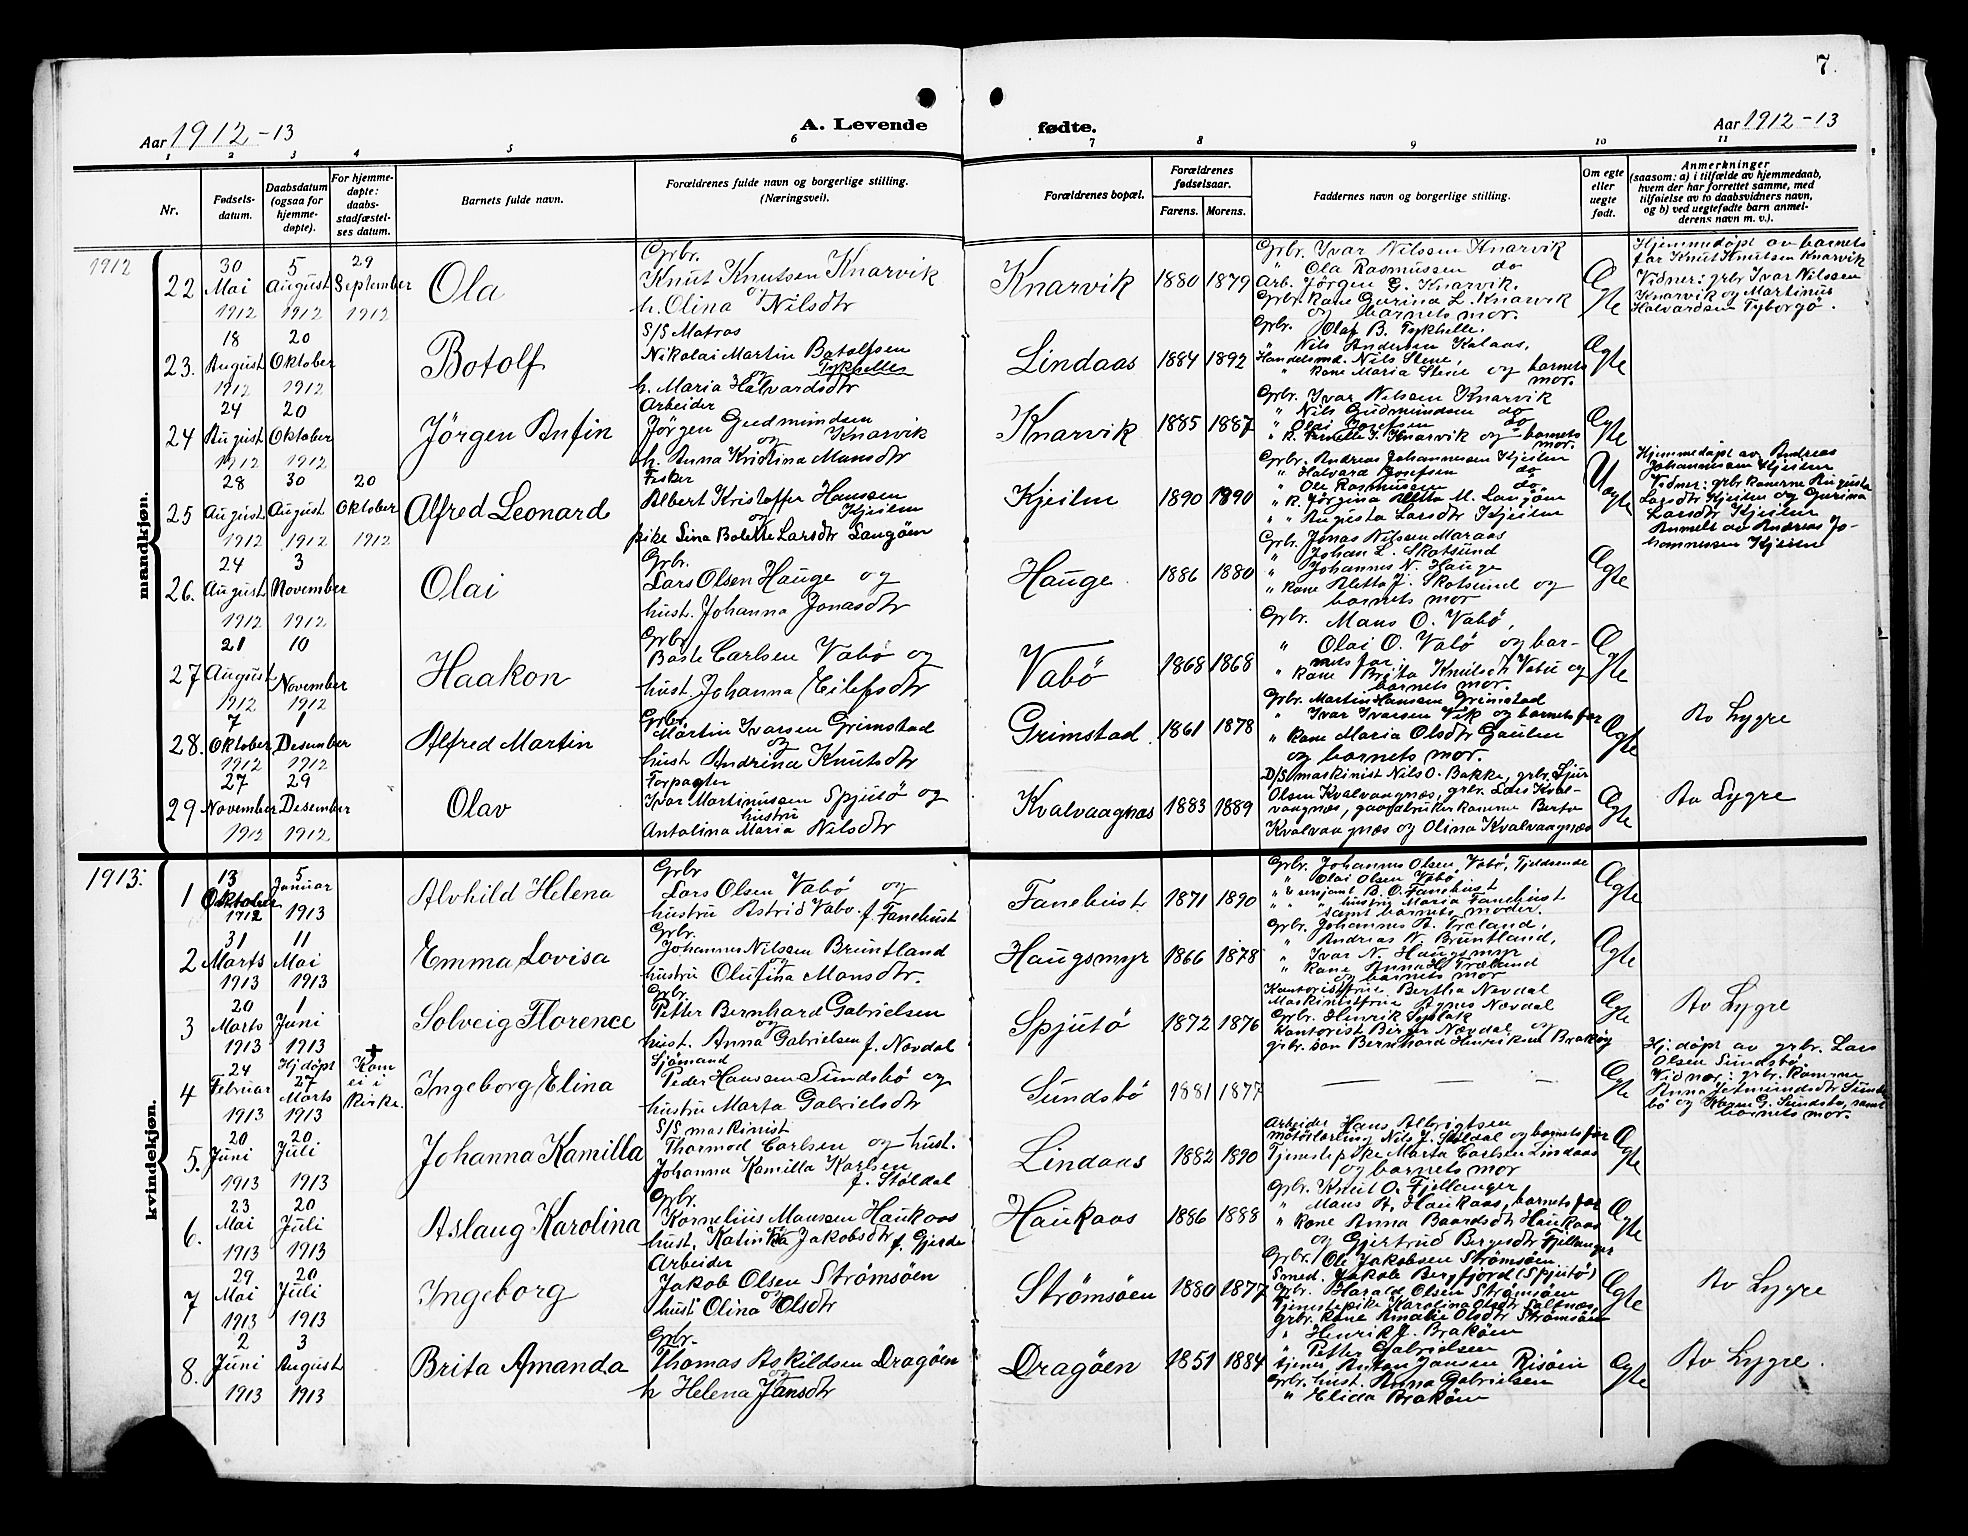 7.
Aar 1912-13
A. Levende fødte.
Aar 1912-13
1 2 3 4 5 6 7 8 9 10 11
Nr.
Fødsels-
datum.
Daabsdatum
(ogsaa for
hjemme-
døpte).
For hjemme-
døpte:
daabs-
stadfæstel-
ses datum.
Barnets fulde navn.
Forældrenes fulde navn og borgerlige stilling.
(Næringsvei).
Forældrenes bopæl.
Forældrenes
fødselsaar.
Farens. Morens.
Faddernes navn og borgerlige stilling.
Om egte
eller
uegte
født.
Anmerkninger
(saasom: a) i tilfælde av hjemmedaab,
hvem der har forrettet samme, med
tilføielse av to daabsvidners navn,
og b) ved uegtefødte barn anmel-
derens navn m. v.).
1912
mandkjøn.
22
30 Mai 1912
5 August 1912
29 September 1912
Ola
Grbr.
Knut Knutsen Knarvik
og
h. Olina Nilsdtr
Knarvik
1880 1879
Grbr. Ivar Nilssen Knarvik
" Ola Rasmussen do
Arb. Jörgen G. Knarvik.
Grbr. kone Gurina L. Knarvik
og barnets mor.
Egte
Hjemmedöpt av barnets
far Knut Knutsen Knarvik
Vidner: grbr Ivar Nilssen
Knarvik og Martinus
Halvardsen Tyborgö.
23.
18 August 1912
20 Oktober 1912
Botolf
S/S Matros
Nikolai Martin Botolfsen
og Tykhelle
h. Maria Halvardsdtr
Lindaas
1884 1892
Grbr. Olaf B. Tykhelle.
" Nils Andersen Kalaas,
Handelsmd. Nils Stene,
" kone Maria Stene og barnets
mor.
Egte
24
24 August 1912
20 Oktober 1912
Jörgen Anfin
Arbeider
Jörgen Gudmundsen
og Knarvik
h. Anna Kristina Mansdtr
Knarvik
1885 1887
Grbr. Ivar Nilssen Knarvik
" Nils Gudmundsen do
" Olai Josefsen do
" k. Pernelle I. Knarvik og barnets
mor.
Egte
25
28 August 1912
30 August 1912
20 Oktober 1912
Alfred Leonard
Fisker
Albert Kristoffer Hanssen
og Kjeilen
pike Lina Bolette Larsdtr Langöen
Kjeilen
1890 1890
Grbr. Andreas Johannesen Kjeilen
" Halvard Josefsen do
" Ole Rasmussen do
" k. Jörgina Aletta M. Langöen
" " Augusta Larsdtr Kjeilen
Uegte
Hjemmedöpt av Andreas
Johannesen Kjeilen
Vidner: grbr konerne Augusta
Larsdtr Kjeilen og Gurina
Larsdtr Kjeilen
Anmelt av Andreas Jo-
hannessen Kjeilen
26.
24 August 1912
3 November 1912
Olai
Grbr.
Lars Olsen Hauge og
hust. Johanna Jonasdtr
Hauge
1886 1880
Grbr. Jonas Nilssen Maraas
" Johan L. Skotsund
" Johannes N. Hauge
" kone Aletta J. Skotsund og
barnets mor
Egte
27
21 August 1912
10 November 1912
Haakon
Grbr
Baste Carlsen Vabö og
hust. Johanna Eilefsdtr
Vabö
1868 1868
Grbr. Mans O. Vabö,
" Olai O. Vabö og bar-
nets far
" kone Brita Knutsdtr Vatu og
barnets mor.
Egte
28.
7 Oktober 1912
1 Desember 1912
Alfred Martin
Grbr.
Martin Ivarsen Grimstad
og
hust Andrina Knutsdtr
Grimstad.
1861 1878
Grbr. Martin Hansen Grimstad
" Ivar Ivarsen Vik og barnets far
" kone Maria Olsdtr Gaulen
og barnets mor.
Egte
Av Lygre
29
27 November 1912
29 Desember 1912
Olav
Forpagter
Ivar Martinussen Spjutö og
hustru
Antalina Maria Nilsdtr
Kvalvaagnæs
1883 1889
D/S maskinist Nils O. Bakke, grbr. Sjur
Olsen Kvalvaagnæs, grbr. Lars Kval-
vaagnæs, gaardbruker konerne Berta
Kvalvaagnæs og Olina Kvalvaagnæs
Egte
Av Lygre
1913.
kvindekjøn.
1
13 Oktober 1912
5 Januar 1913
Alvhild Helena
Grbr
Lars Olsen Vabö og
hustru Astrid Vabö f. Fanehust
Fanehust.
1871 1890
Grbr. Johannes Olsen Vabö, Fjeldsende
" Olai Olsen Vabö
" & sersjant B. O. Fanehust
" " hustru Maria Fanehust
samt barnets moder.
Egte
2
31 Marts 1913
11 Mai 1913
Emma Lovisa
Grbr.
Johannes Nilssen Bruntland
og
hustru Olufina Mansdtr.
Haugsmyr
1866 1878
Grbr. Johannes A. Træland,
" Andreas N. Bruntland,
" Ivar N. Haugsmyr
" kone Anna H. Træland
og barnets mor
Egte
3
20 Marts 1913
1 Juni 1913
Solveig Florence
Grbr.
Petter Bernhard Gabrielsen
og
hust. Anna Gabrielsen f. Nævdal
Spjutö
1872 1876
Kontoristfrue Bertha Nævdal
Maskinistfrue Agnes Nævdal
Grbr. Henrik Spjutö
Kontorist Birger Nævdal og
grbr. son Bernhard Henriksen Braköy
Egte
Av Lygre
4
24 Februar 1913
Hjdöpt 27 Marts 1913
† Kom ei i kirke.
Ingeborg Elina
Sjömand
Peder Hanssen Sundsbö og
hustru Marta Gabrielsdtr
Sundsbö
1881 1877
— — — —
Egte
Hj. döpt av grbr. Lars
Olsen Sundsbö.
Vidner: grbr. konerne
Anna Jetmundsdtr Sunds-
bö og Karen G. Sundsbö, samt
barnets mor.
5.
20 Juni 1913
20 Juli 1913
Johanna Kamilla
S/S maskinist
Thormod Carlsen og hust.
Johanna Kamilla Karlsen
f. Stöldal
Lindaas
1882 1890
Arbeider Hans Albrigtsen
motorlærling Nils J. Stöldal og barnets far
Tjenestepike Marta Carlsen Lindaas
og barnets mor
Egte
6.
23 Mai 1913
20 Juli 1913
Aslaug Karolina
Grbr.
Kornelius Manssen Haukaas
hust. Katinka Jakobsdtr f. Gjerde
Haukaas
1886 1888
Grbr. Knut O. Fjellanger
" Mans A. Haukaas, barnets far
" kone Anna Baardsdtr Haukaas
og Gjertrud Bergesdtr Fjellanger
Egte
7
29 Mai 1913
20 Juli 1913
Ingeborg
Arbeider
Jakob Olsen Strömsöen
og
hust Olina Olsdtr
Strömsöen
1880 1877
Grbr. Ole Jakobsen Strömsöen
Smed. Jakob Bergfjord (Spjutö)
Grbr. Harald Olsen Strömsöen
Tjenestepike Karolina Olsdtr Saltnæs,
Grbr. kone Amalie Olsdtr Strömsöen
Egte
Av Lygre
8.
2 Juni 1913
3 August 1913
Brita Amanda
Grbr.
Thomas Askildsen Dragöen
og
h Helena Jansdtr
Dragöen
1851 1884
" Henrik J. Braköen
" Petter Gabrielsen
tjener Anton Jansen Risöen
Grbr. hust. Anna Gabrielsen
" Elida Braköen
Egte
Av Lygre.